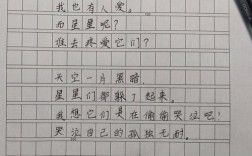 我也有人爱。
而星星呢？
谁去疼爱它们？
天空一片黑暗，
星星们都躲了起来。
我想它们是在偷偷哭泣吧！
哭泣自己的孤独无耐。